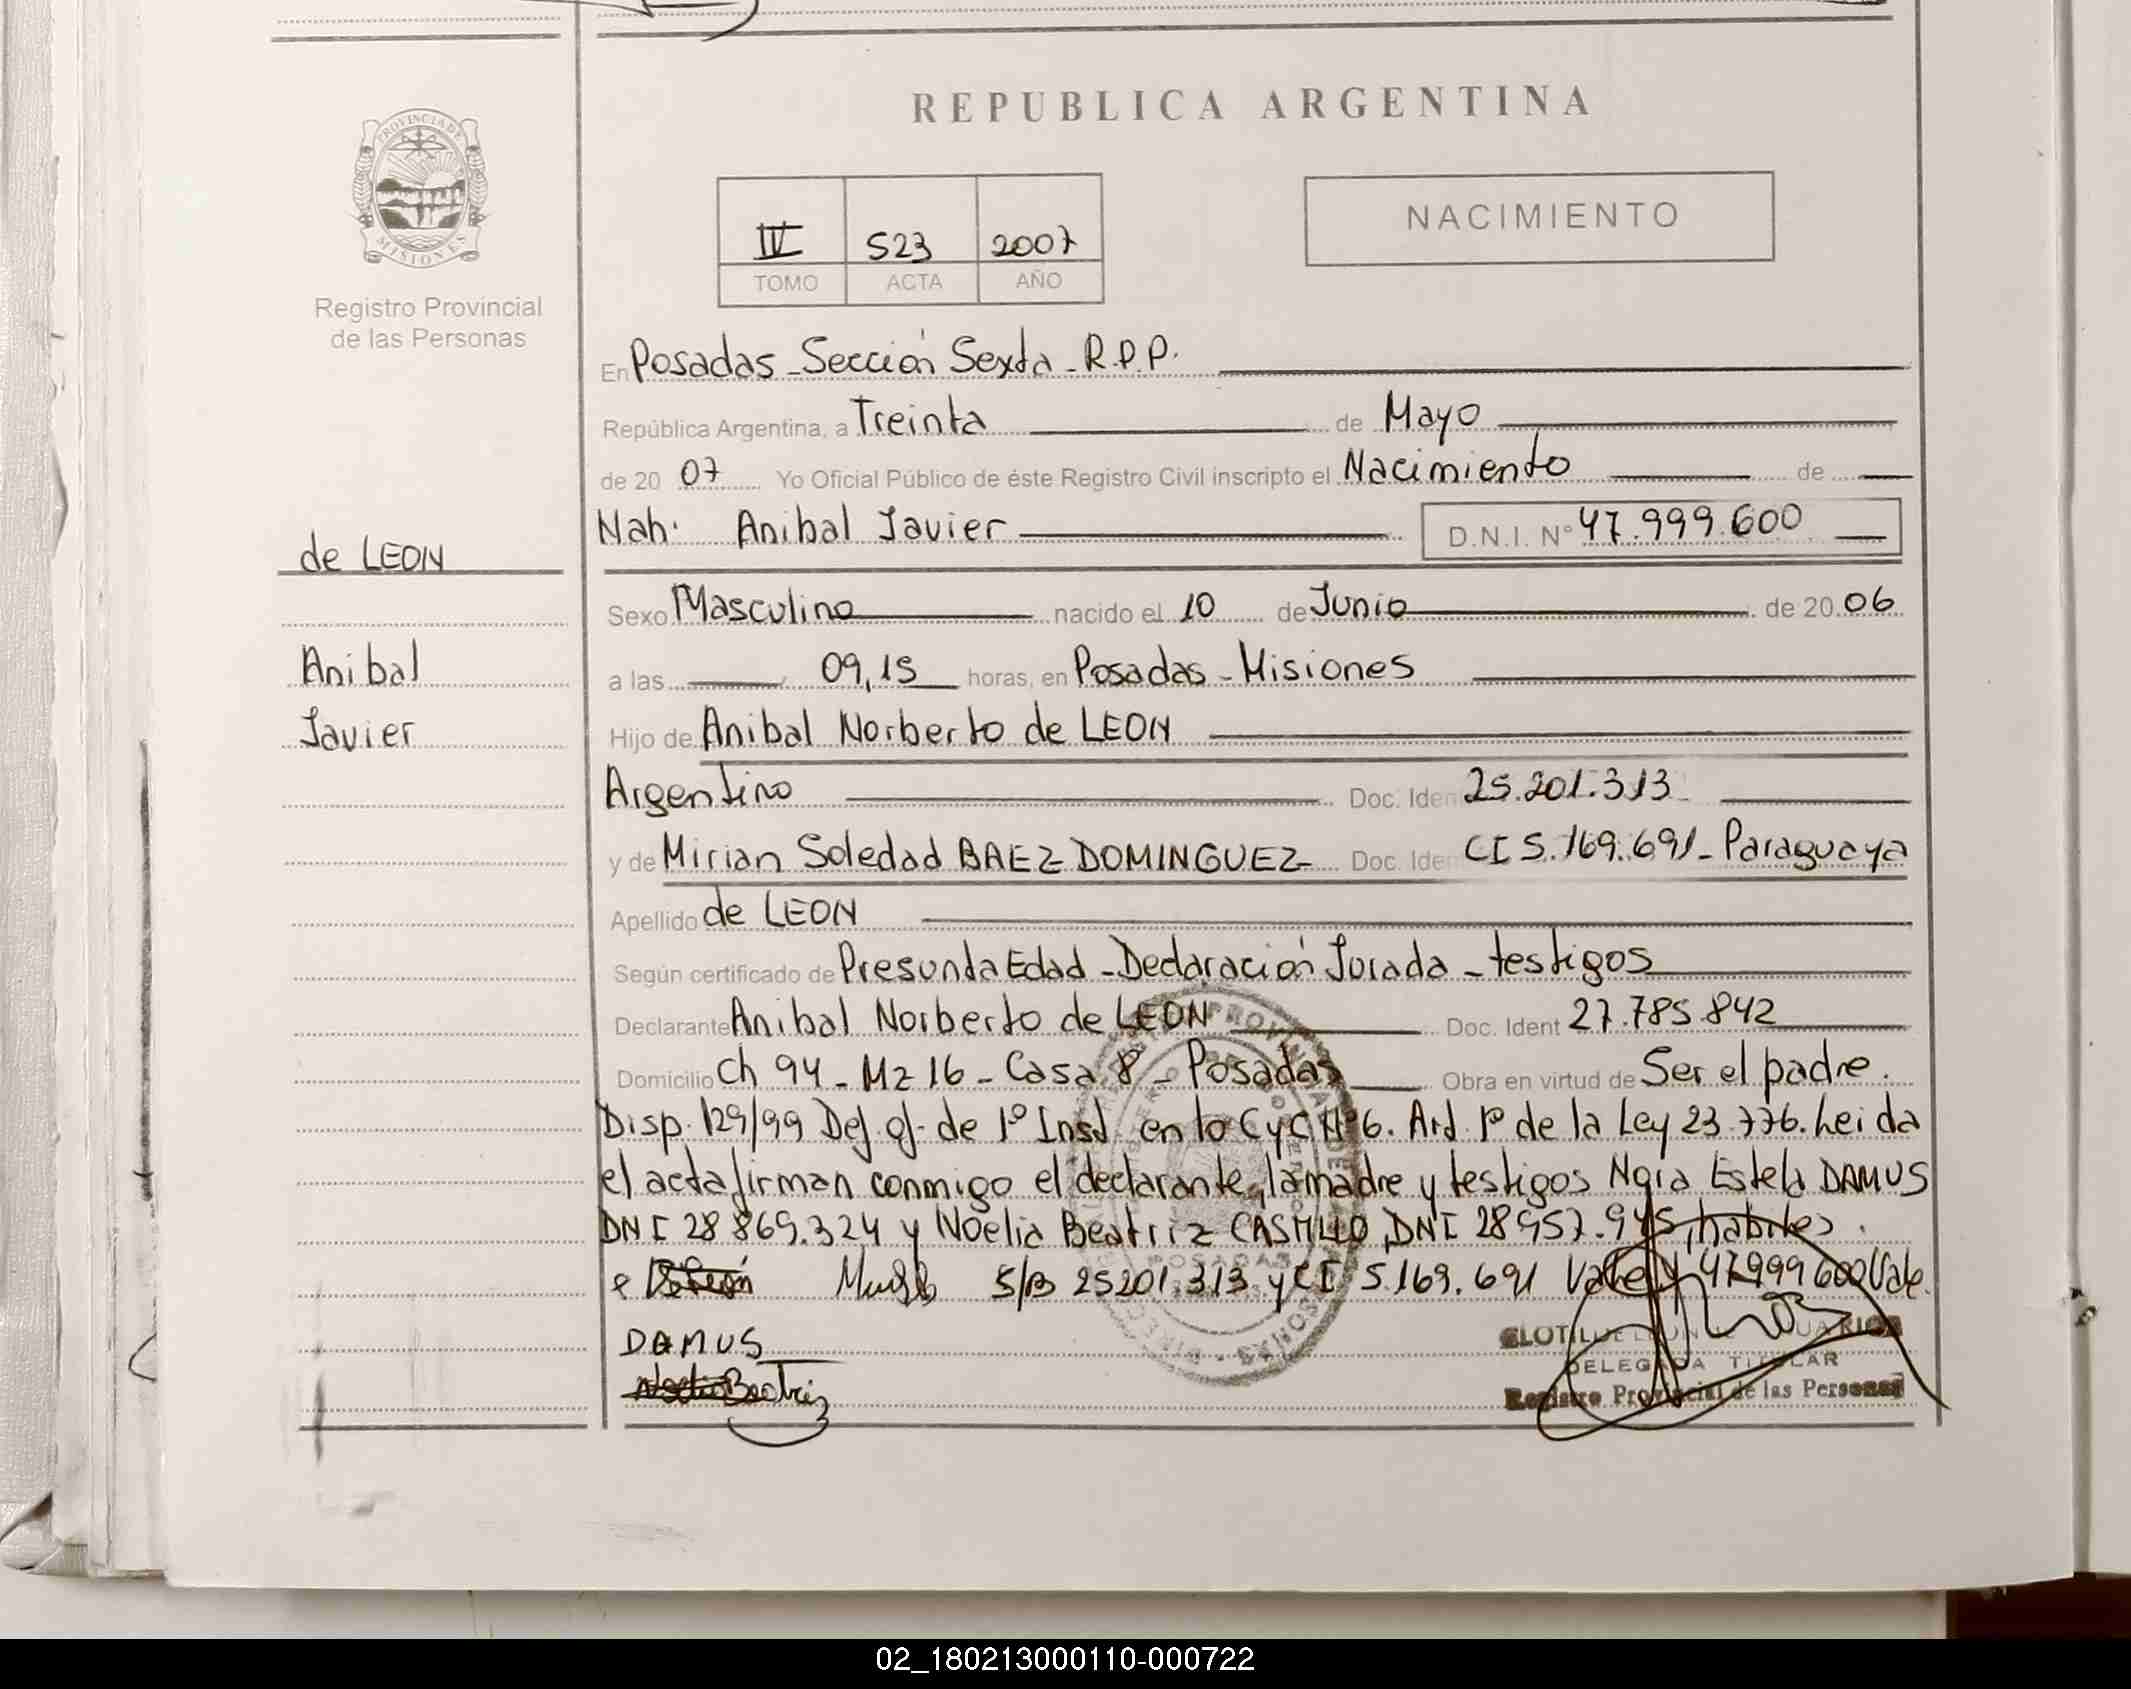 REPUBLICA ARGENTINA
PROVINCIA DE
MISIONES
Registro Provincial
de las Personas
IV 523 2007
TOMO ACTA AÑO
NACIMIENTO
En Posadas - Sección Sexta - R.P.P.
República Argentina, a Treinta de Mayo
de 20 07 Yo Oficial Público de éste Registro Civil inscripto el Nacimiento de
Nah: Anibal Javier D.N.I. N° 47.999.600
de LEON
Sexo Masculino nacido el 10 de Junio de 20 06
Anibal
a las 09,15 horas, en Posadas - Misiones
Javier
Hijo de Anibal Norberto de LEON
Argentino Doc. Iden 25.201.313
y de Mirian Soledad BAEZ DOMINGUEZ Doc. Iden CI 5.169.691 - Paraguaya
Apellido de LEON
Según certificado de Presunta Edad - Declaración Jurada - testigos
Declarante Anibal Norberto de LEON Doc. Ident 27.785.842
Domicilio Ch 94 - Mz 16 - Casa 8 - Posadas Obra en virtud de Ser el padre.
Disp. 129/99 Def. of. de 1° Inst. en lo CyC N°6. Art. 1° de la Ley 23.776. Leida
el acta firman conmigo el declarante, la madre y testigos Estela DAMUS
DNI 28 869.324 y Noelia Beatriz CASTILLO, DNI 28 957.945, habiles.
S/B 25 201.313 y CI 5.169.691 Vale y 47.999 600 Vale.
DAMUS
Beatriz
DELEGADA TITULAR
Registro Provincial de las Personas
02_180213000110-000722